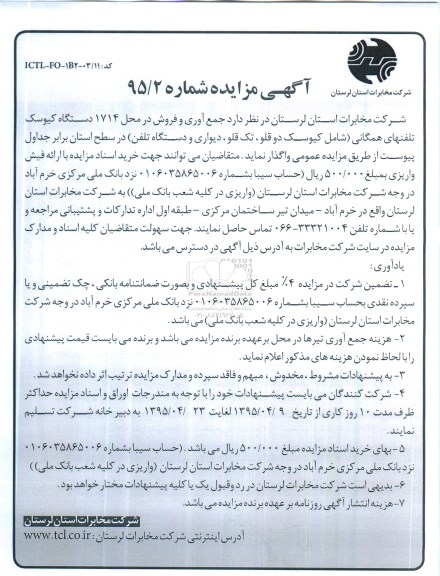 کد: ICTL-FO-1B2-03/11
شرکت مخابرات استان لرستان
آگهی مزایده شماره ۹۵/۲
شرکت مخابرات استان لرستان در نظر دارد جمع آوری و فروش در محل ۱۷۱۴ دستگاه کیوسک
تلفنهای همگانی (شامل کیوسک دو قلو ، تک قلو ، دیواری و دستگاه تلفن) در سطح استان برابر جداول
پیوست از طریق مزایده عمومی واگذار نماید . متقاضیان می توانند جهت خرید اسناد مزایده با ارائه فیش
واریزی بمبلغ ۵۰۰/۰۰۰ ریال (حساب سیبا بشماره ۰۱۰۶۰۳۵۸۶۵۰۰۶ نزد بانک ملی مرکزی خرم آباد
در وجه شرکت مخابرات استان لرستان (واریزی در کلیه شعب بانک ملی)) به شرکت مخابرات استان
لرستان واقع در خرم آباد - میدان تیر ساختمان مرکزی - طبقه اول اداره تدارکات و پشتیبانی مراجعه و
یا با شماره تلفن ۳۳۳۲۱۰۰۴-۰۶۶ تماس حاصل نمایند. جهت سهولت متقاضیان کلیه اسناد و مدارک
مزایده در سایت شرکت مخابرات به آدرس ذیل آگهی در دسترس می باشد.
یادآوری :
۱- تضمین شرکت در مزایده ۴٪ مبلغ کل پیشنهادی و بصورت ضمانتنامه بانکی ، چک تضمینی و یا
سپرده نقدی بحساب سیبا بشماره ۰۱۰۶۰۳۵۸۶۵۰۰۶ نزد بانک ملی مرکزی خرم آباد در وجه شرکت
مخابرات استان لرستان (واریزی در کلیه شعب بانک ملی) می باشد.
۲- هزینه جمع آوری تیرها در محل بر عهده برنده مزایده می باشد و برنده می بایست قیمت پیشنهادی
را با لحاظ نمودن هزینه های مذکور اعلام نماید.
۳- به پیشنهادات مشروط ، مخدوش ، مبهم و فاقد سپرده و مدارک مزایده ترتیب اثر داده نخواهد شد.
۴- شرکت کنندگان می بایست پیشنهادات خود را با توجه به مندرجات اوراق و اسناد مزایده حداکثر
ظرف مدت ۱۰ روز کاری از تاریخ ۹ /۱۳۹۵/۰۴ لغایت ۲۳ /۱۳۹۵/۰۴ به دبیر خانه شرکت تسلیم
نمایند.
۵- بهای خرید اسناد مزایده مبلغ ۵۰۰/۰۰۰ ریال می باشد . (حساب سیبا بشماره ۰۱۰۶۰۳۵۸۶۵۰۰۶
نزد بانک ملی مرکزی خرم آباد در وجه شرکت مخابرات استان لرستان (واریزی در کلیه شعب بانک ملی))
۶- بدیهی است شرکت مخابرات لرستان در رد و قبول یک یا کلیه پیشنهادات مختار خواهد بود.
۷- هزینه انتشار آگهی روزنامه بر عهده برنده مزایده می باشد.
شرکت مخابرات استان لرستان
آدرس اینترنتی شرکت مخابرات لرستان : www.tcl.co.ir